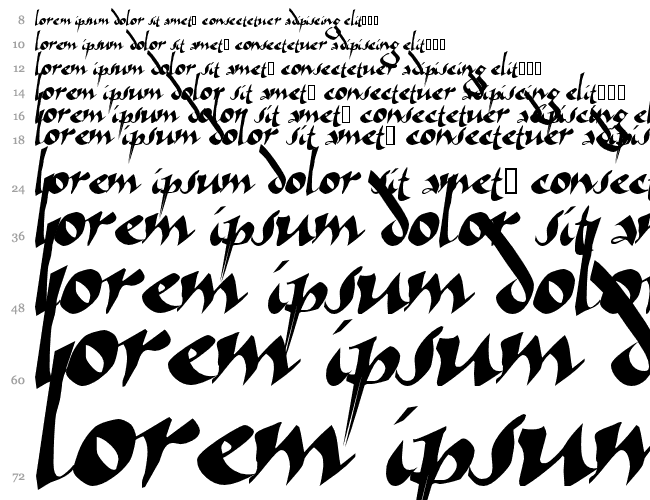 8 lorem ipsum dolor sit amet□ consectetuer adipiscing elit□□□
10 lorem ipsum dolor sit amet□ consectetuer adipiscing elit□□□
12 lorem ipsum dolor sit amet□ consectetuer adipiscing elit□□□
14 lorem ipsum dolor sit amet□ consectetuer adipiscing elit□□□
16 lorem ipsum dolor sit amet□ consectetuer adipiscing
18 lorem ipsum dolor sit amet□ consectetuer adipis
24 lorem ipsum dolor sit amet□ consect
36 lorem ipsum dolor sit
48 lorem ipsum dolor
60 lorem ipsum
72 lorem ipsum